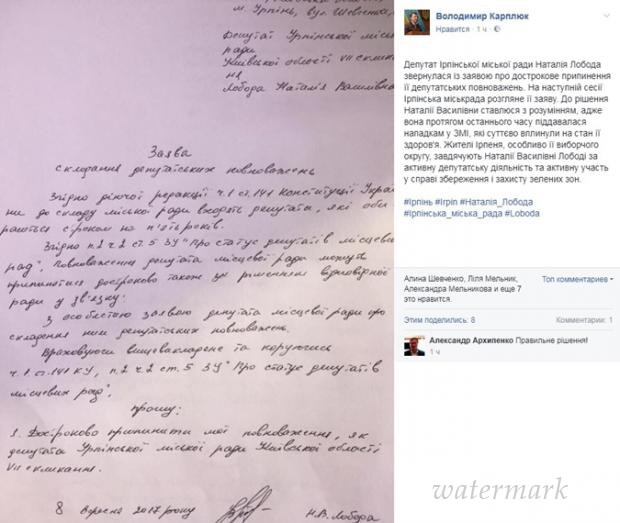 м. Ірпінь, вул. Шевченка,
Депутат Ірпінської міської
ради
Київської області VII скликан
ня
Лобода Наталія Василівна
Заява
складання депутатських повноважень
Згідно діючої редакції ч.1 ст.141 Конституції Украї
ни до складу міської ради входять депутати, які оби
раються строком на п'ять років.
Згідно п.2 ч.2 ст.5 ЗУ "Про статус депутатів місцевих
рад", повноваження депутата місцевої ради можуть
припинятися достроково також за рішенням відповідної
ради у зв'язку:
З особистою заявою депутата місцевої ради про
складення ним депутатських повноважень.
Враховуючи вищевикладене та керуючись
ч.1 ст.141 КУ, п.2 ч.2 ст.5 ЗУ "Про статус депутатів
місцевих рад",
прошу:
1. Достроково припинити мої повноваження, як
депутата Ірпінської міської ради Київської області
VII скликання.
8 вересня 2017 року
Н.В. Лобода
Володимир Карплюк
Нравится · 1 ч ·
Депутат Ірпінської міської ради Наталія Лобода
звернулася із заявою про дострокове припинення
її депутатських повноважень. На наступній сесії
Ірпінська міськрада розгляне її заяву. До рішення
Наталії Василівни ставлюся з розумінням, адже
вона протягом останнього часу піддавалася
нападкам у ЗМІ, які суттєво вплинули на стан її
здоров'я. Жителі Ірпеня, особливо її виборчого
округу, завдячують Наталії Василівні Лободі за
активну депутатську діяльність та активну участь
у справі збереження і захисту зелених зон.
#Ірпінь #Irpin #Наталія_Лобода
#Ірпінська_міська_рада #Loboda
Алина Шевченко, Ліля Мельник,
Александра Мельникова и еще 7
это нравится.
Топ комментариев
Этим поделились: 8
Комментарии: 1
Александр Архипенко Правильне рішення!
1 ч
watermark